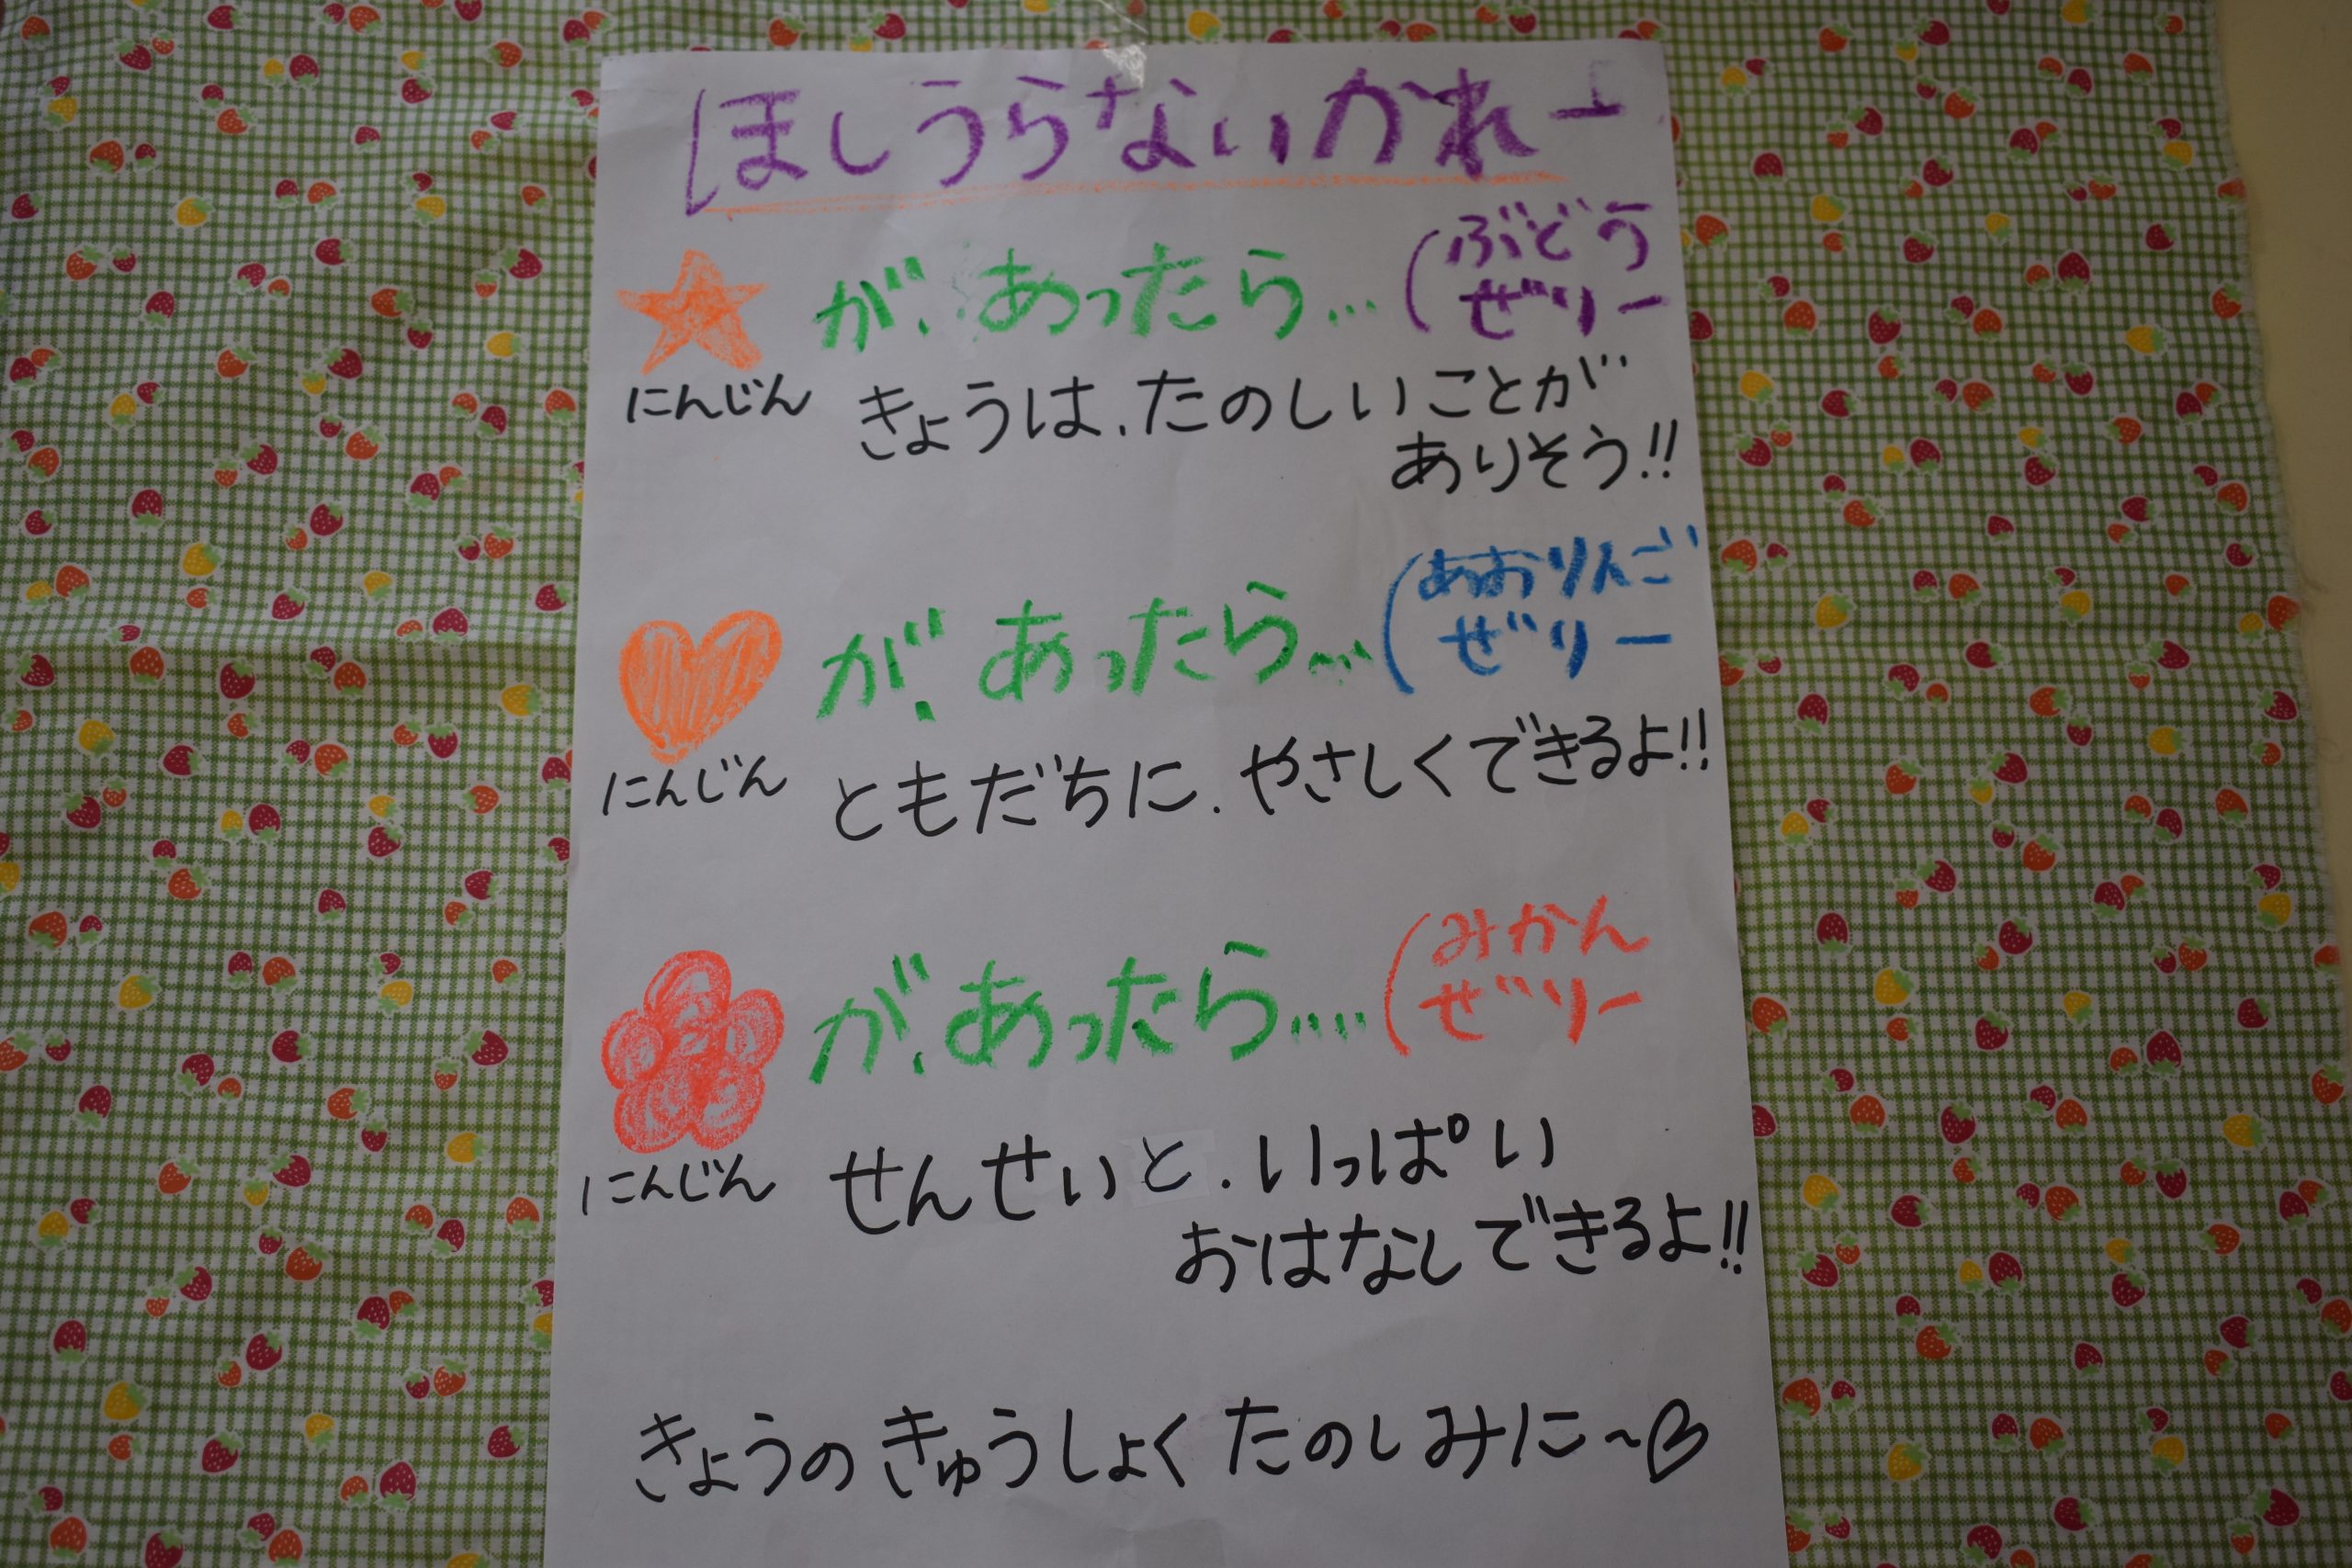 ほしうらないかれー
が、あったら… (ぶどう
ぜりー
にんじん きょうは、たのしいことが
ありそう!!
が、あったら… (あおりんご
ぜりー
にんじん ともだちに、やさしくできるよ!!
が、あったら…. (みかん
ぜりー
にんじん せんせいと、いっぱい
おはなしできるよ!!
きょうのきゅうしょくたのしみに~♡